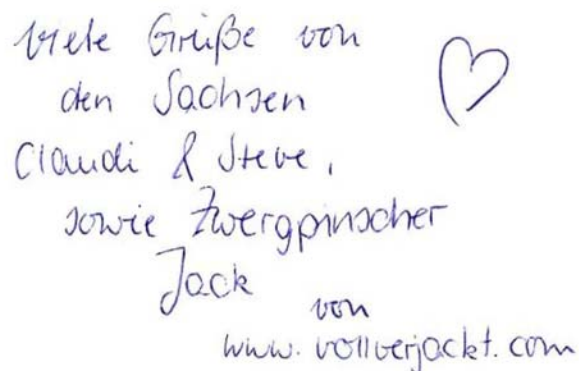 Viele Grüße von
den Sachsen
Claudi & Steve,
sowie Zwergpinscher
Jack
von
www.vollverjackt.com